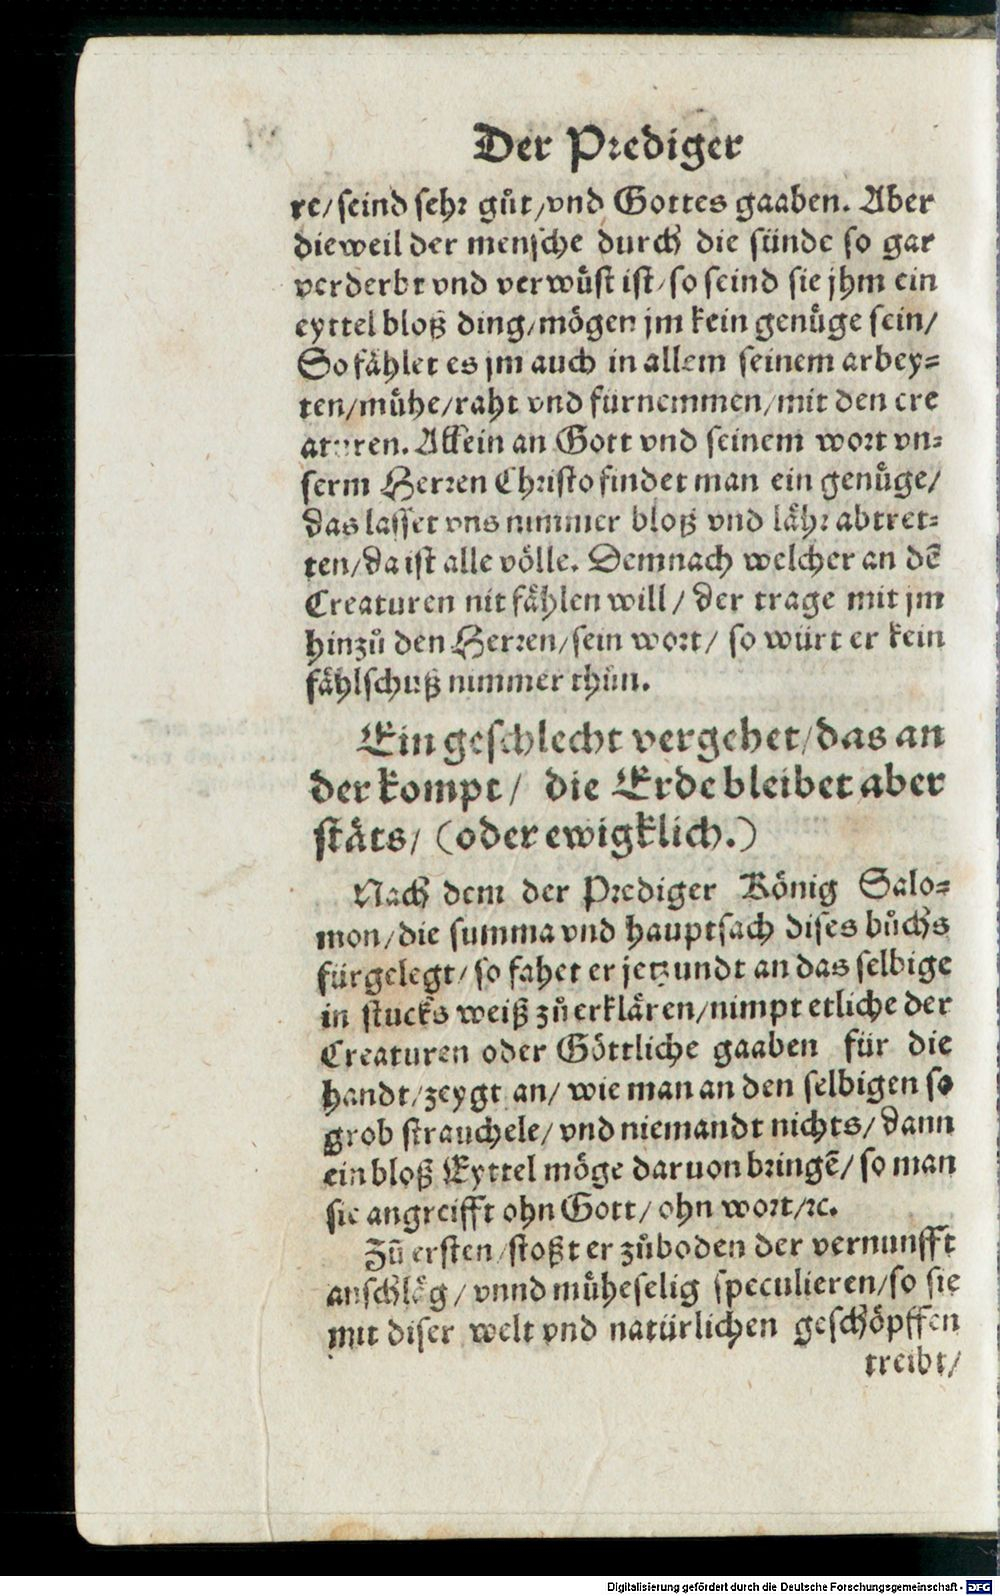 Der Prediger
re/ seind sehr gůt/ vnd Gottes gaaben. Aber
dieweil der mensche durch die sünde so gar
verderbt vnd verwüst ist/ so seind sie jhm ein
eyttel bloß ding/ mögen jm kein genüge sein/
So fählet es jm auch in allem seinem arbey-
ten/ mühe/ raht vnd fürnemmen/ mit den cre
aturen. Allein an Gott vnd seinem wort vn-
serm Herren Christo findet man ein genüge/
das lasset vns nimmer bloß vnd lähr abtret-
ten/ da ist alle völle. Demnach welcher an dē
Creaturen nit fählen will/ der trage mit jm
hinzů den Herren/ sein wort/ so würt er kein
fählschuß nimmer thůn.
Ein geschlecht vergehet/ das an
der kompt/ die Erde bleibet aber
stäts/ (oder ewigklich.)
Nach dem der Prediger König Salo-
mon/ die summa vnd hauptsach dises bůchs
fürgelegt/ so fahet er jetzundt an das selbige
in stucks weiß zů erklären/ nimpt etliche der
Creaturen oder Göttliche gaaben für die
handt/ zeygt an/ wie man an den selbigen so
grob strauchele/ vnd niemandt nichts/ dann
ein bloß Eyttel möge daruon bringē/ so man
sie angreifft ohn Gott/ ohn wort/ ꝛc.
Zů ersten/ stoßt er zůboden der vernunfft
anschläg/ vnnd müheselig speculieren/ so sie
mit diser welt vnd natürlichen geschöpffen
treibt/
Digitalisierung gefördert durch die Deutsche Forschungsgemeinschaft - DFG